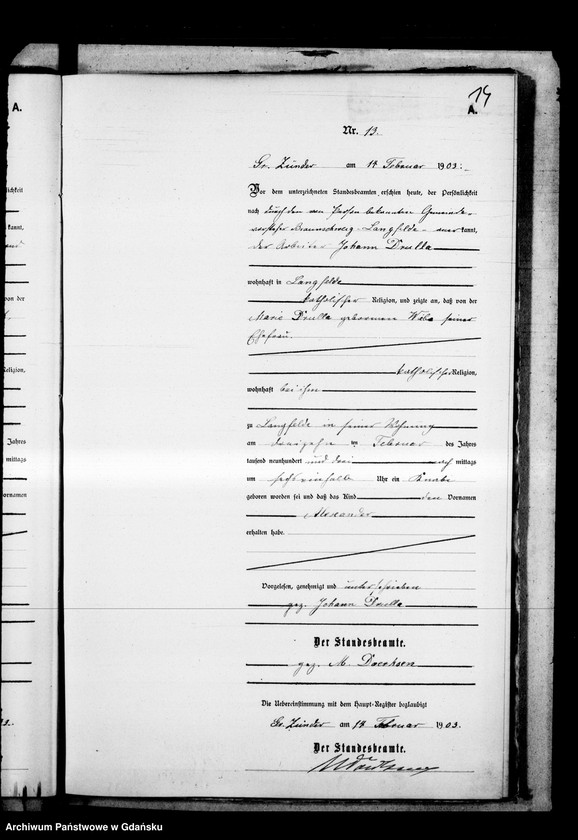 14
A.
A.
Nr. 13.
Gr. Zünder am 14 Februar 1903.
Vor dem unterzeichneten Standesbeamten erschien heute, der Persönlichkeit
nach durch den von Person bekannten Gemeinde-
vorsteher Braunschweig-Langfelde aner kannt,
der Arbeiter Johann Drulla
wohnhaft in Langfelde
katholischer Religion, und zeigte an, daß von der
Marie Drulla geborenen seiner
Ehefrau,
katholischer Religion,
wohnhaft bei ihm
zu Langfelde in seiner Wohnung
am dreizehn ten Februar des Jahres
tausend neunhundert und drei nach mittags
um sechseinhalb Uhr ein Knabe
geboren worden sei und daß das Kind den Vornamen
Alexander
erhalten habe.
Vorgelesen, genehmigt und unterschrieben
gez. Johann Drulla
Der Standesbeamte.
gez. M.
Die Uebereinstimmung mit dem Haupt-Register beglaubigt
Gr. Zünder am 14 Februar 1903.
Der Standesbeamte.
kannt,
von der
Religion,
Jahres
mittags
Vornamen
Archiwum Państwowe w Gdańsku